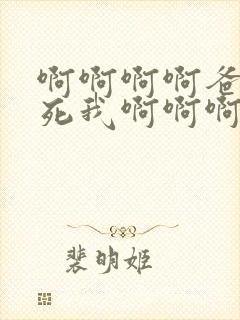 啊啊啊啊爸
死我啊啊啊
裴明姬